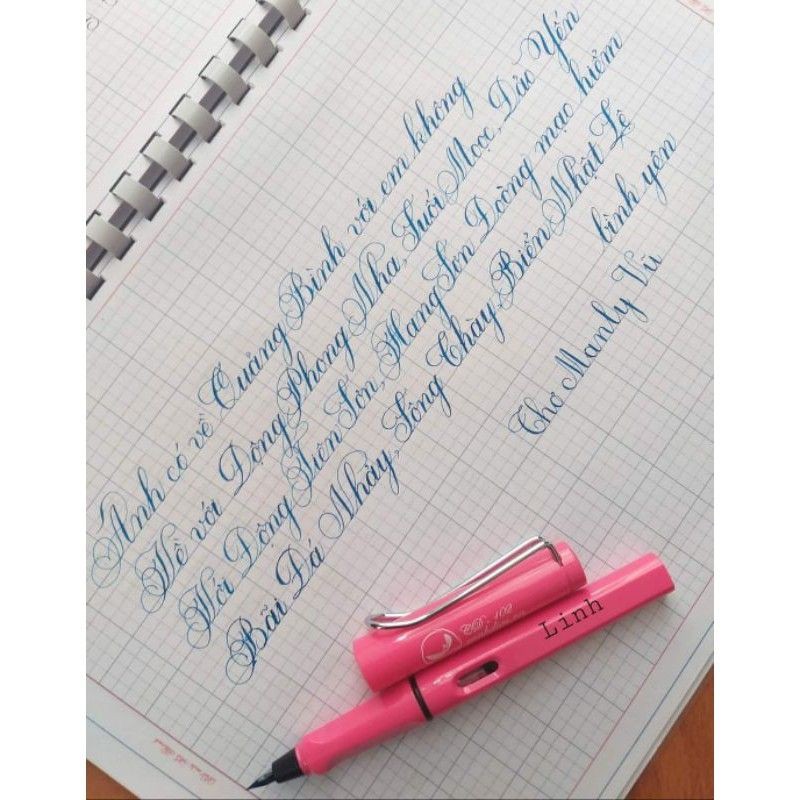 Anh có về Quảng Bình với em không
Về với Động Phong Nha, Suối Moọc, Đảo Yến
Với Động Tiên Sơn, Hang Sơn Đoòng mạo hiểm
Bãi Đá Nhảy, Sông Chày, Biển Nhật Lệ
bình yên
Thơ Manly Vũ
Linh